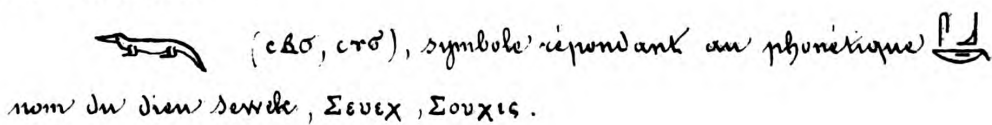 𓆊 (ⲥⲃϭ, ⲥⲩϭ), symbole répondant au phonétique 𓋴𓃀𓎡
nom du dieu Sevek, Σευεχ, Σουχις.